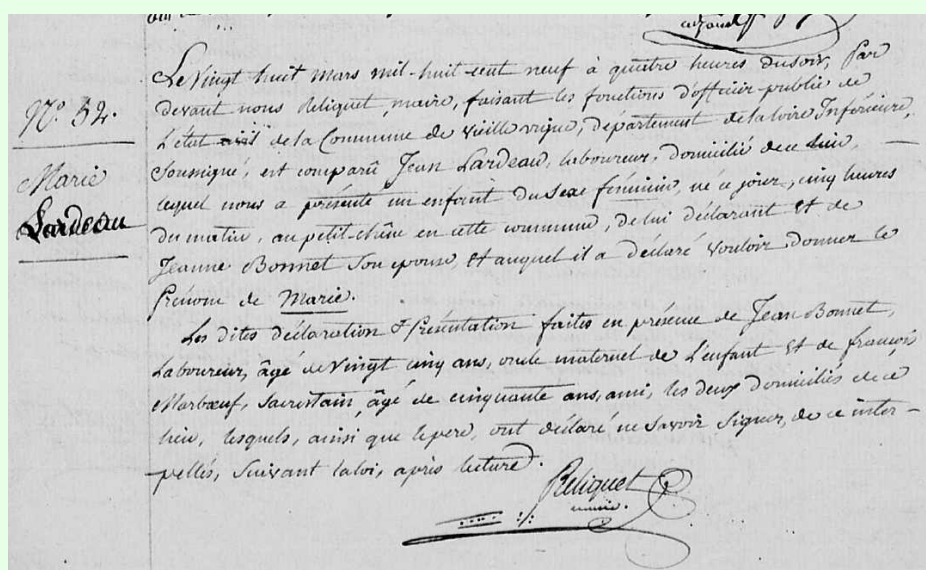 Le Vingt huit mars mil-huit-cent neuf à quatre heures du soir, Par
devant nous Réliquet, maire, faisant les fonctions d'officier public de
L'état civil de la Commune de vieille vigne, département de la loire Inférieure,
N.º 52.
Soussigné, est comparû Jean Lardeau, laboureur, domicilié de ce lieu,
Marie
Lardeau
lequel nous a présenté un enfant du Sexe féminin, né ce jour, cinq heures
du matin, au petit-chêne en cette commune, de lui déclarant et de
Jeanne Bonnet Son épouse, et auquel il a déclaré vouloir donner le
Prénom de Marie.
Les dites déclaration & Présentation faites en présence de Jean Bonnet,
Laboureur, âgé de Vingt cinq ans, oncle maternel de L'enfant et de françois
Marboeuf, Sacristain, âgé de cinquante ans, ami, les deux domiciliés de ce
lieu, lesquels, ainsi que le père, ont déclaré ne Savoir Signer, de ce inter-
-pellés, Suivant la loi, après lecture.
Réliquet
maire